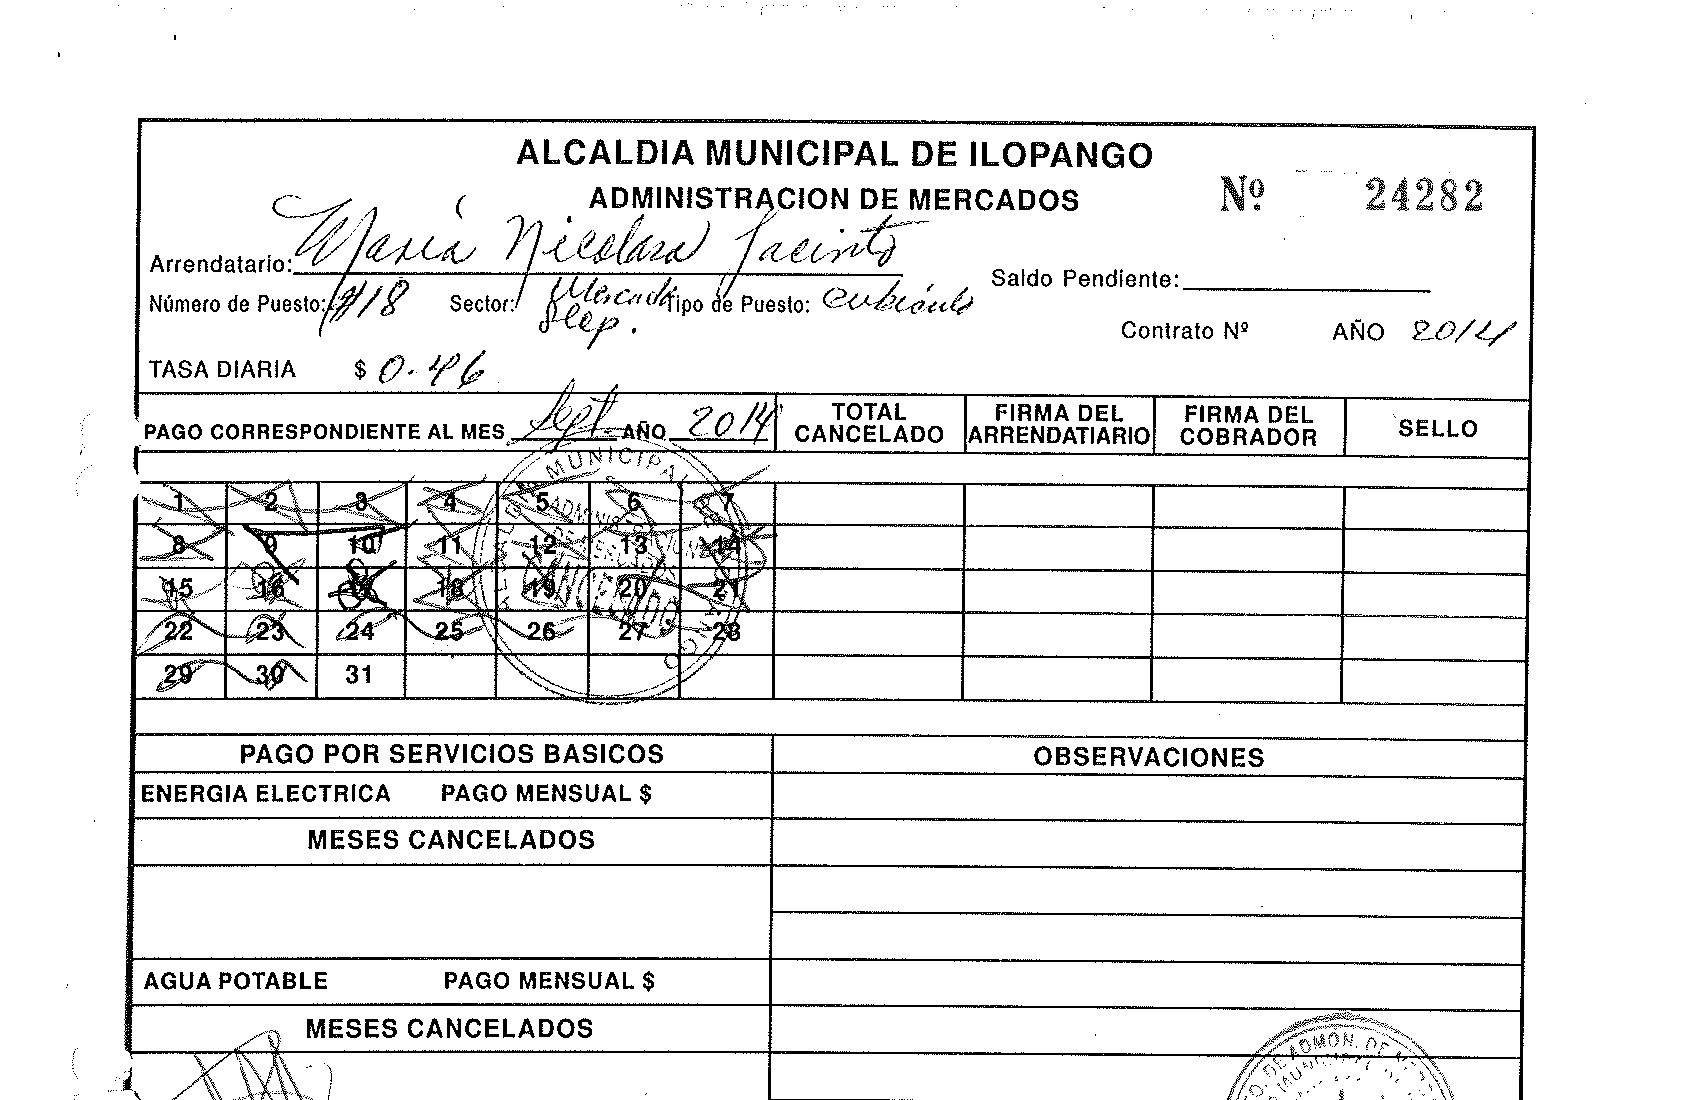 ALCALDIA MUNICIPAL DE ILOPANGO
ADMINISTRACION DE MERCADOS Nº 24282
Arrendatario: María Nicolasa Jacinto
Saldo Pendiente:
Número de Puesto: #18 Sector: Mercado Tipo de Puesto: cubículo
Contrato Nº AÑO 2014
TASA DIARIA $ 0.46
PAGO CORRESPONDIENTE AL MES Sept. AÑO 2014 TOTAL CANCELADO FIRMA DEL ARRENDATIARIO FIRMA DEL COBRADOR SELLO
1 2 3 4 5 6 7
8 9 10 11 12 13 14
15 16 17 18 19 20 21
22 23 24 25 26 27 28
29 30 31
MUNICIPAL
CANCELADO
PAGO POR SERVICIOS BASICOS OBSERVACIONES
ENERGIA ELECTRICA PAGO MENSUAL $
MESES CANCELADOS
AGUA POTABLE PAGO MENSUAL $
MESES CANCELADOS
DE ADMÓN. DE